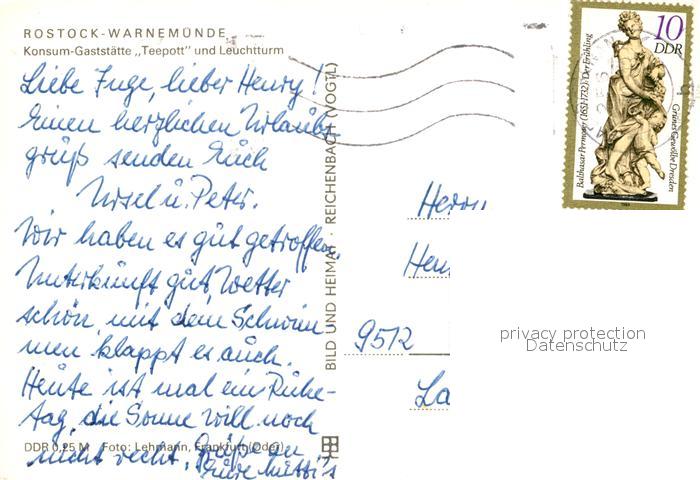 ROSTOCK-WARNEMÜNDE
Konsum-Gaststätte „Teepott" und Leuchtturm
Liebe Inge, lieber Henry!
Einen herzlichen Urlaubs-
gruß senden Euch
Ursel u. Peter.
Wir haben es gut getroffen.
Unterkunft gut, Wetter
schön, mit dem Schwim
men klappt es auch.
Heute ist mal ein Ruhe-
tag, die Sonne will noch
nicht recht. Grüße an
Eure Mutti's
DDR 0,25 M Foto: Lehmann, Frankfurt(Oder)
BILD UND HEIMAT · REICHENBACH (VOGTL)
10
DDR
Balthasar Permoser (1651-1732): Der Frühling
Grünes Gewölbe Dresden
Herrn
Hen
9512
La
privacy protection
Datenschutz